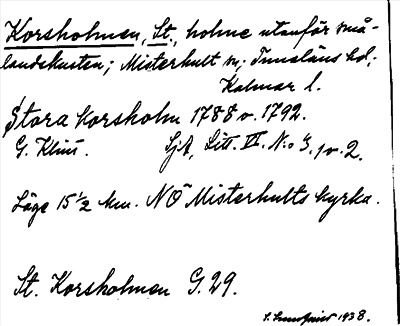 Korsholmen, St., holme utanför små-
landskusten; Misterhult sn; Tunaläns hd;
Kalmar l.
Stora Korsholm 1788 o. 1792.
G. Klint. Sjk, Litt. VI. N:o 3. o. 2.
Läge 15 1/2 km. NO Misterhults kyrka.
St. Korsholmen G. 29.
1938.